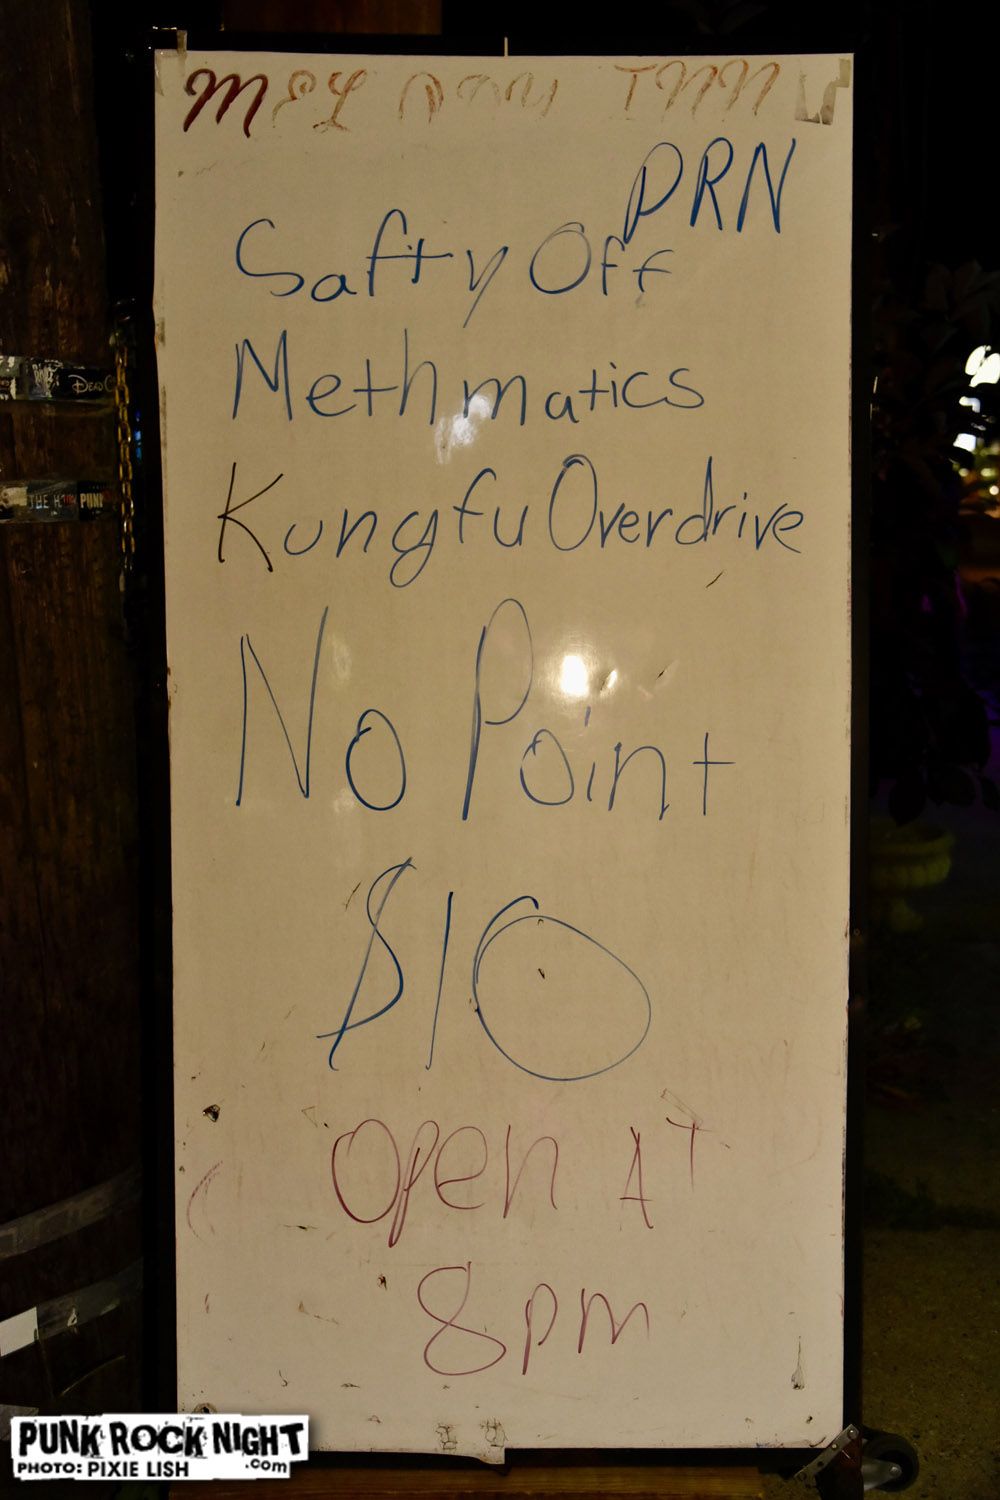 PRN
Safty Off
Methmatics
Kungfu Overdrive
No Point
$10
Open AT
8pm
DEAD
THE PUNK
PUNK ROCK NIGHT
.com
PHOTO: PIXIE LISH